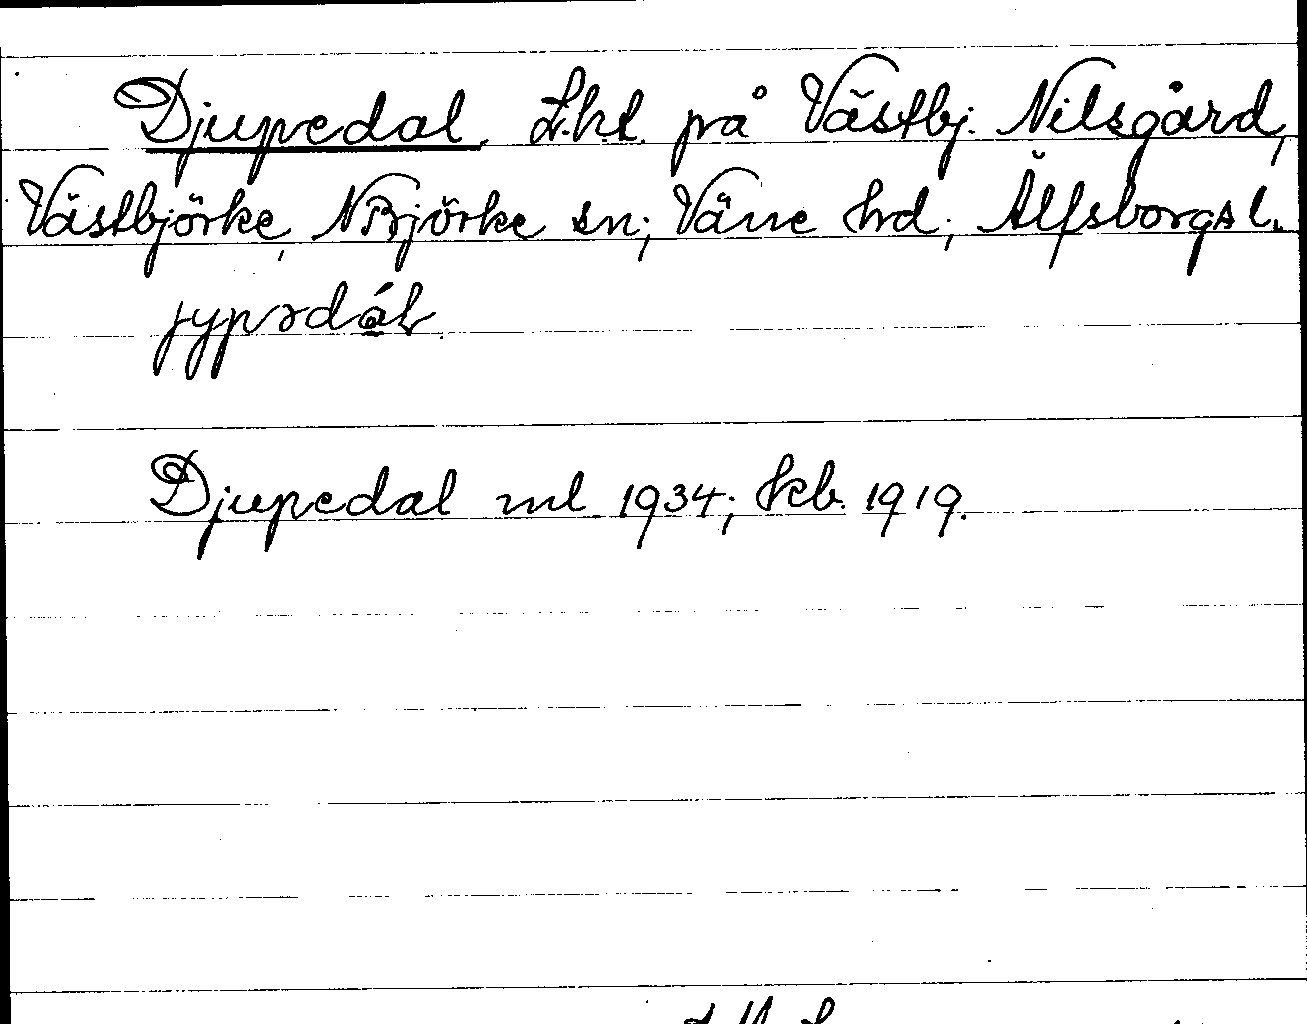 Djupedal. L.ht. på Västbj. Nilsgård,
Västbjörke, N Björke sn; Väne hd; Älfsborgs l.
jypədáɫ.
Djupedal ml 1934; kb. 1919.